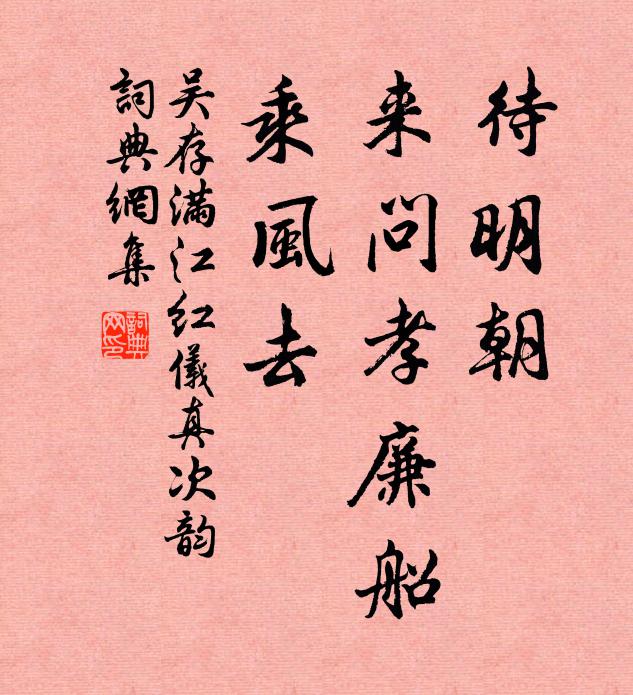 待明朝
来问孝廉船
乘風去
吴存满江红儀真次韵
詞典網集
詞典网印